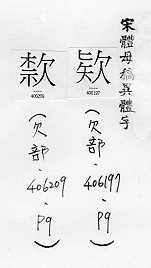 宋體母稿異體字
欵
406197
(欠部.406197.P9)
406209
(欠部.406209.P9)